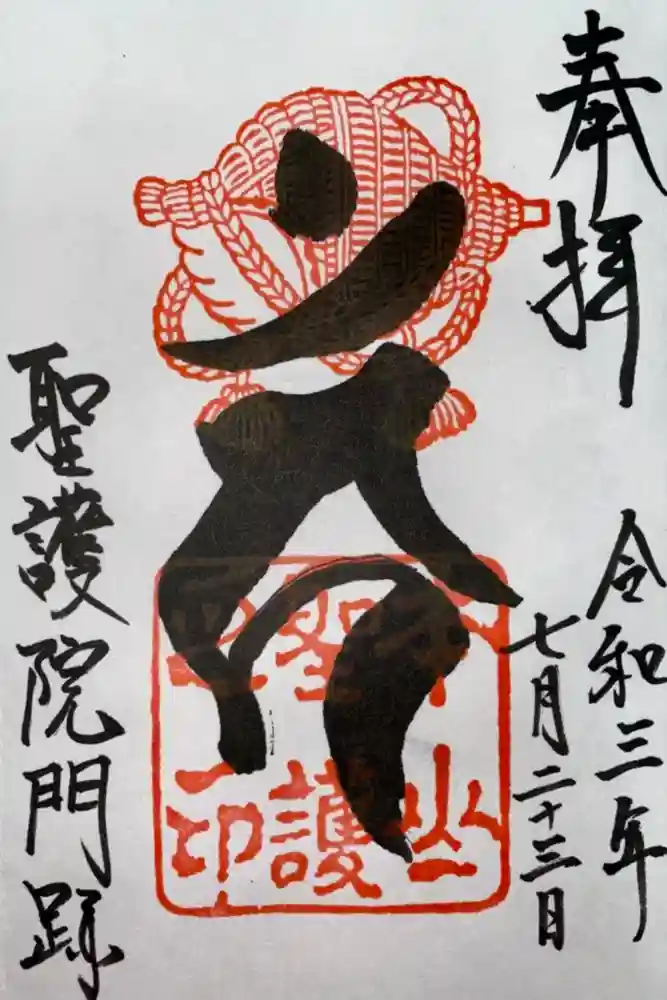 奉拝
令和三年
七月二十三日
山
聖護
印
聖護院門跡